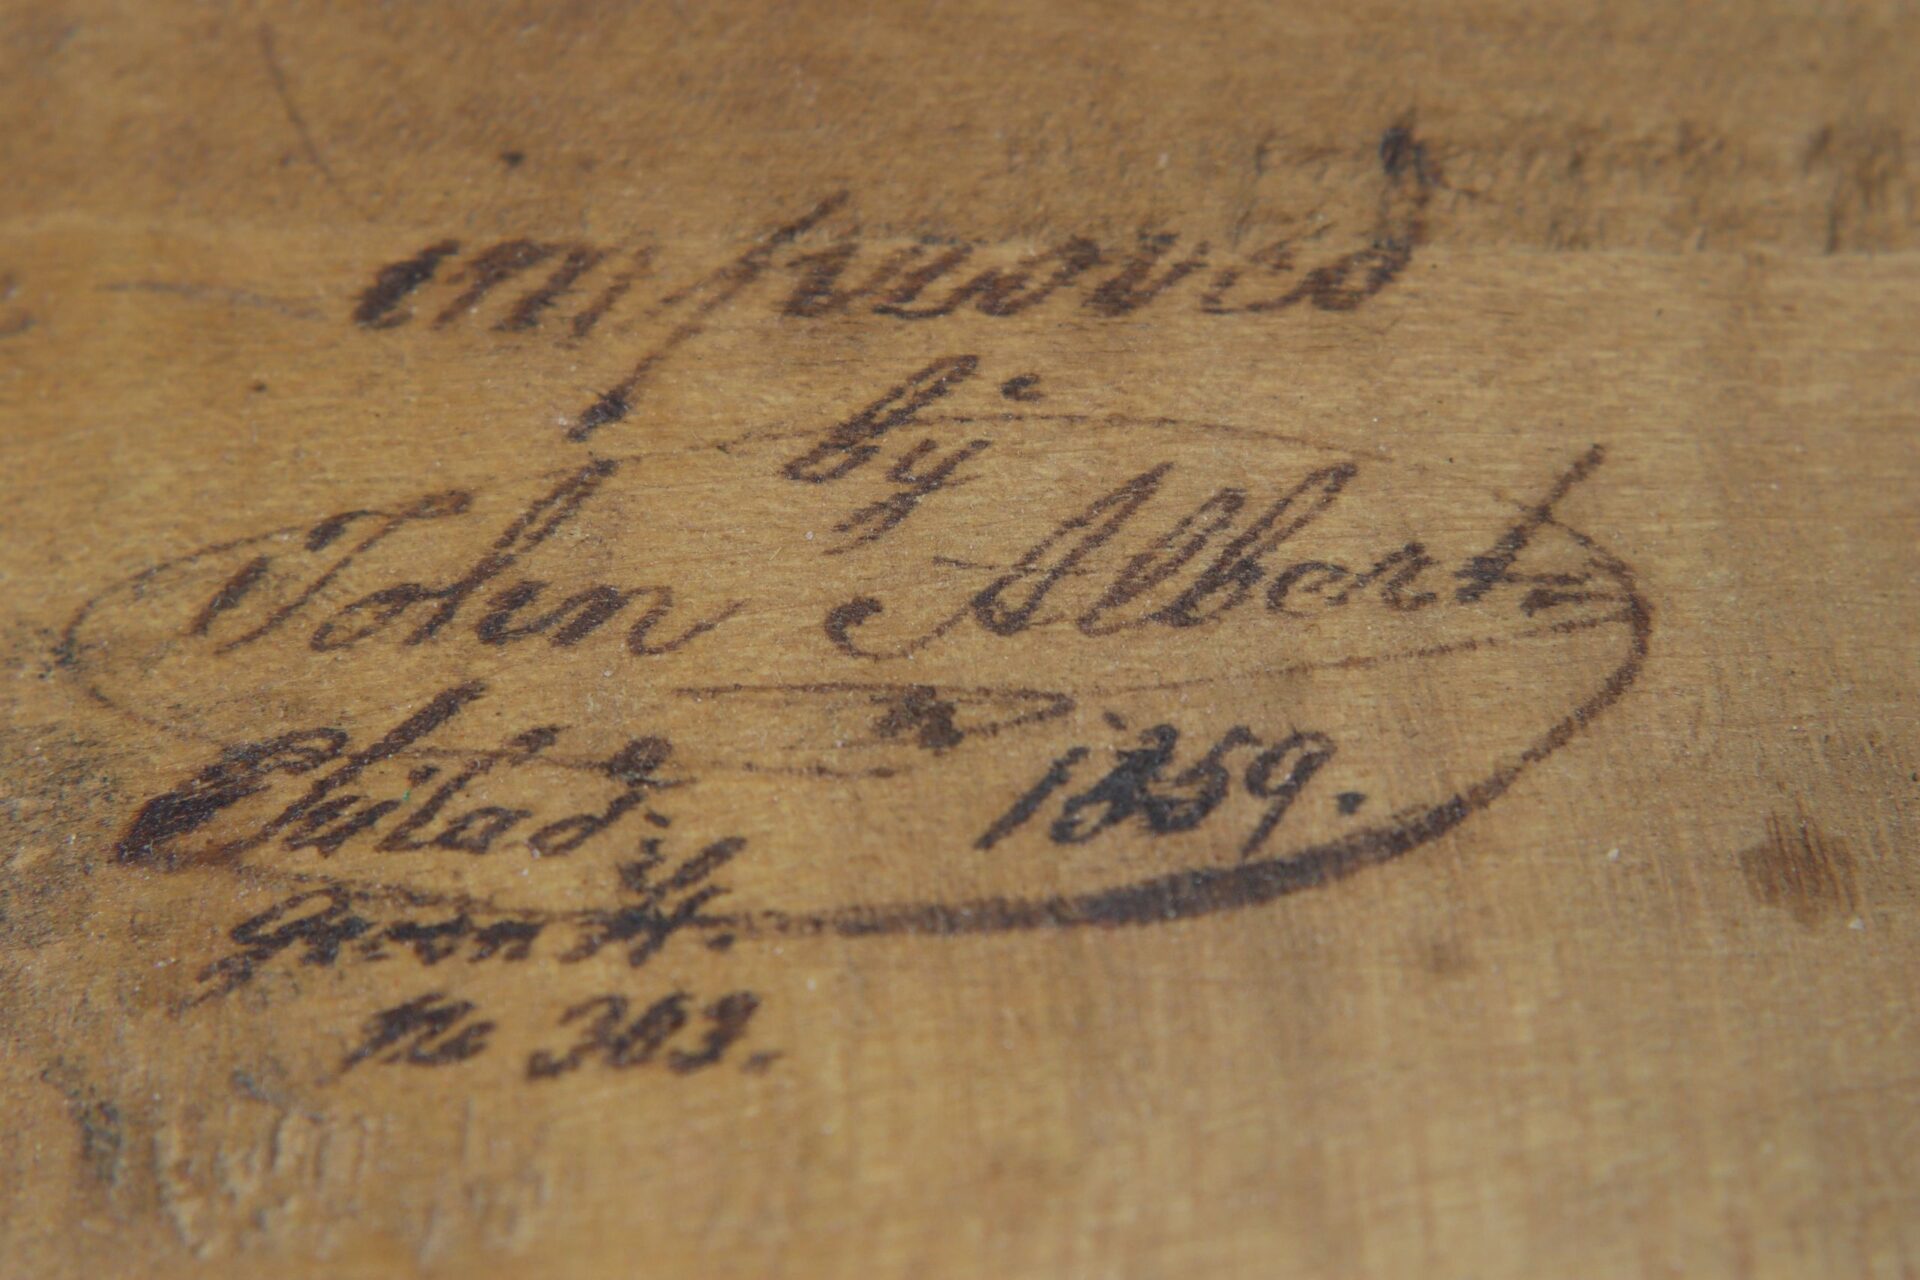 improved
by
John Albert.
Philad.ª 1859.
Green St.
No 363.